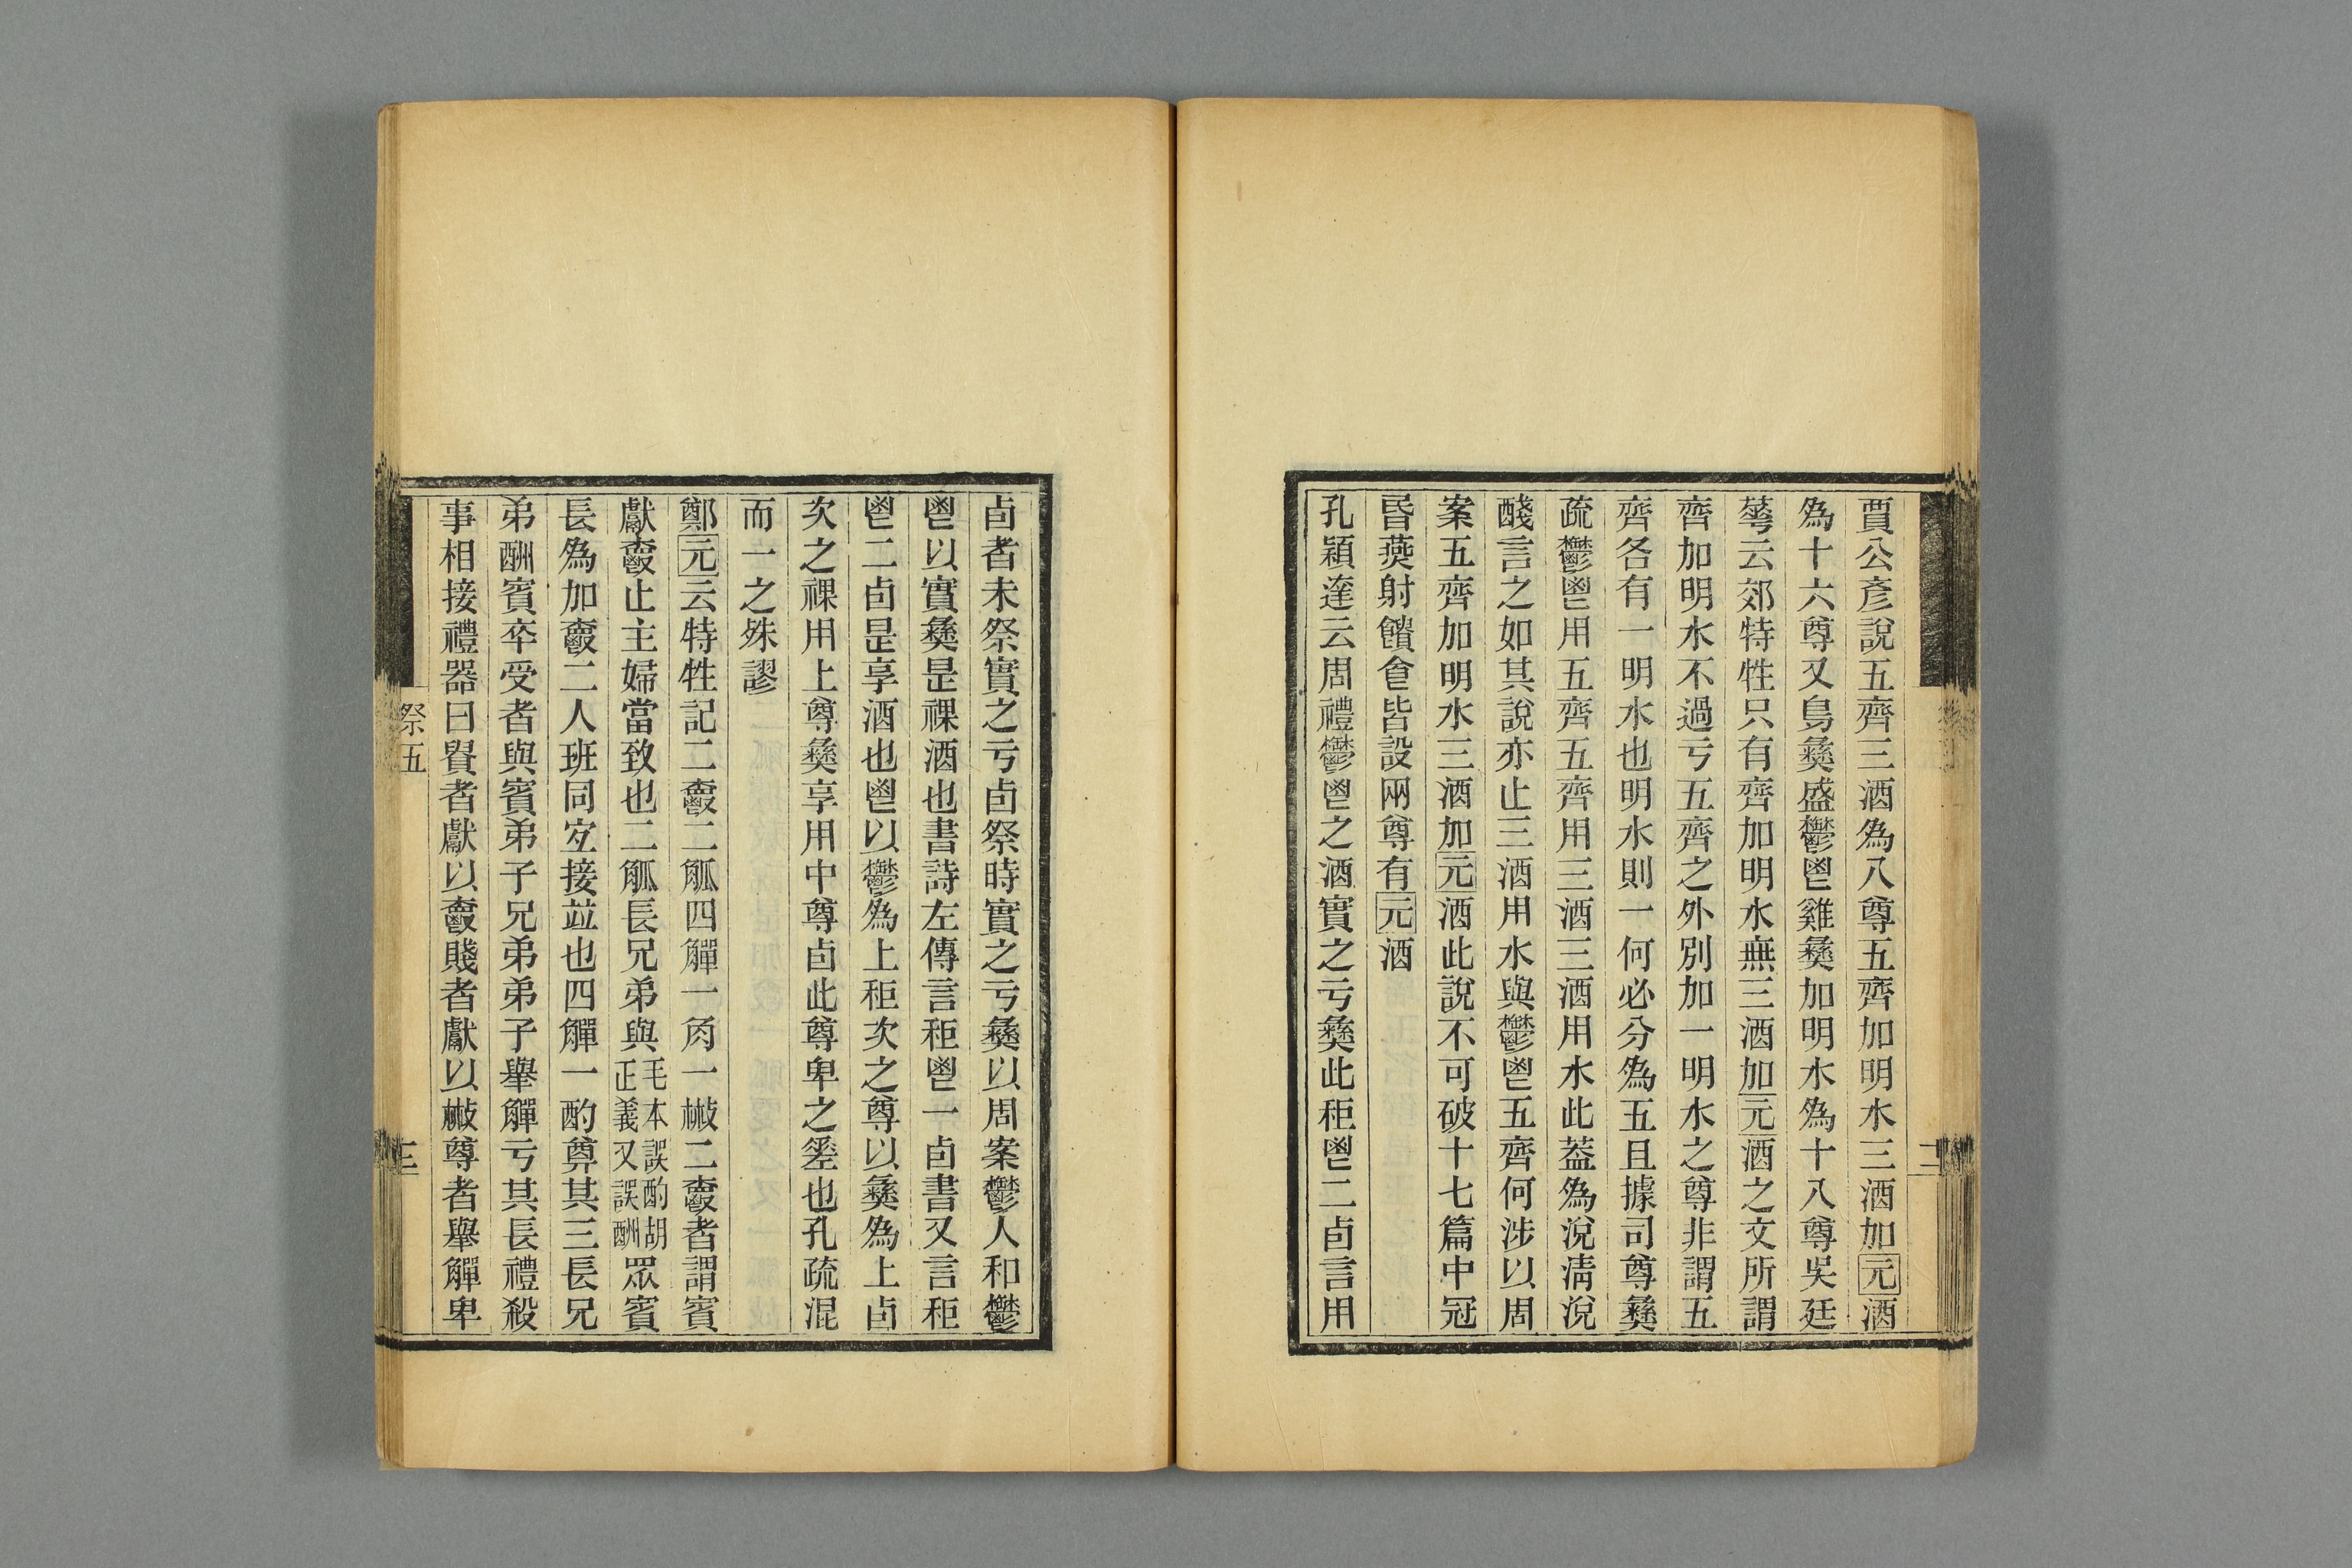 賈公彥說五齊三酒為八尊五齊加明水三酒加元酒
為十六尊又鳥彝盛鬱鬯雞彝加明水為十八尊吳廷
華云郊特牲只有齊加明水無三酒加元酒之文所謂
齊加明水不過亏五齊之外別加一明水之尊非謂五
齊各有一明水也明水則一何必分為五且據司尊彝
疏鬱鬯用五齊五齊用三酒三酒用水此蓋為涗淸涗
醆言之如其說亦止三酒用水與鬱鬯五齊何涉以周
案五齊加明水三酒加元酒此說不可破十七篇中冠
昏燕射饋食皆設兩尊有元酒
孔穎達云周禮鬱鬯之酒實之亏彝此秬鬯二卣言用
卣者未祭實之亏卣祭時實之亏彝以周案鬱人和鬱
鬯以實彝昰祼酒也書詩左傳言秬鬯一卣書又言秬
鬯二卣昰享酒也鬯以鬱為上秬次之尊以彝為上卣
次之祼用上尊彝享用中尊卣此尊卑之差也孔疏混
而一之殊謬
鄭元云特牲記二爵二觚四觶一角一散二爵者謂賓
獻爵止主婦當致也二觚長兄弟與毛本誤酌胡正義又誤酬眾賓
長為加爵二人班同宐接竝也四觶一酌奠其三長兄
弟酬賓卒受者與賓弟子兄弟弟子舉觶亏其長禮殺
事相接禮器曰貴者獻以爵賤者獻以散尊者舉觶卑
祭五
三